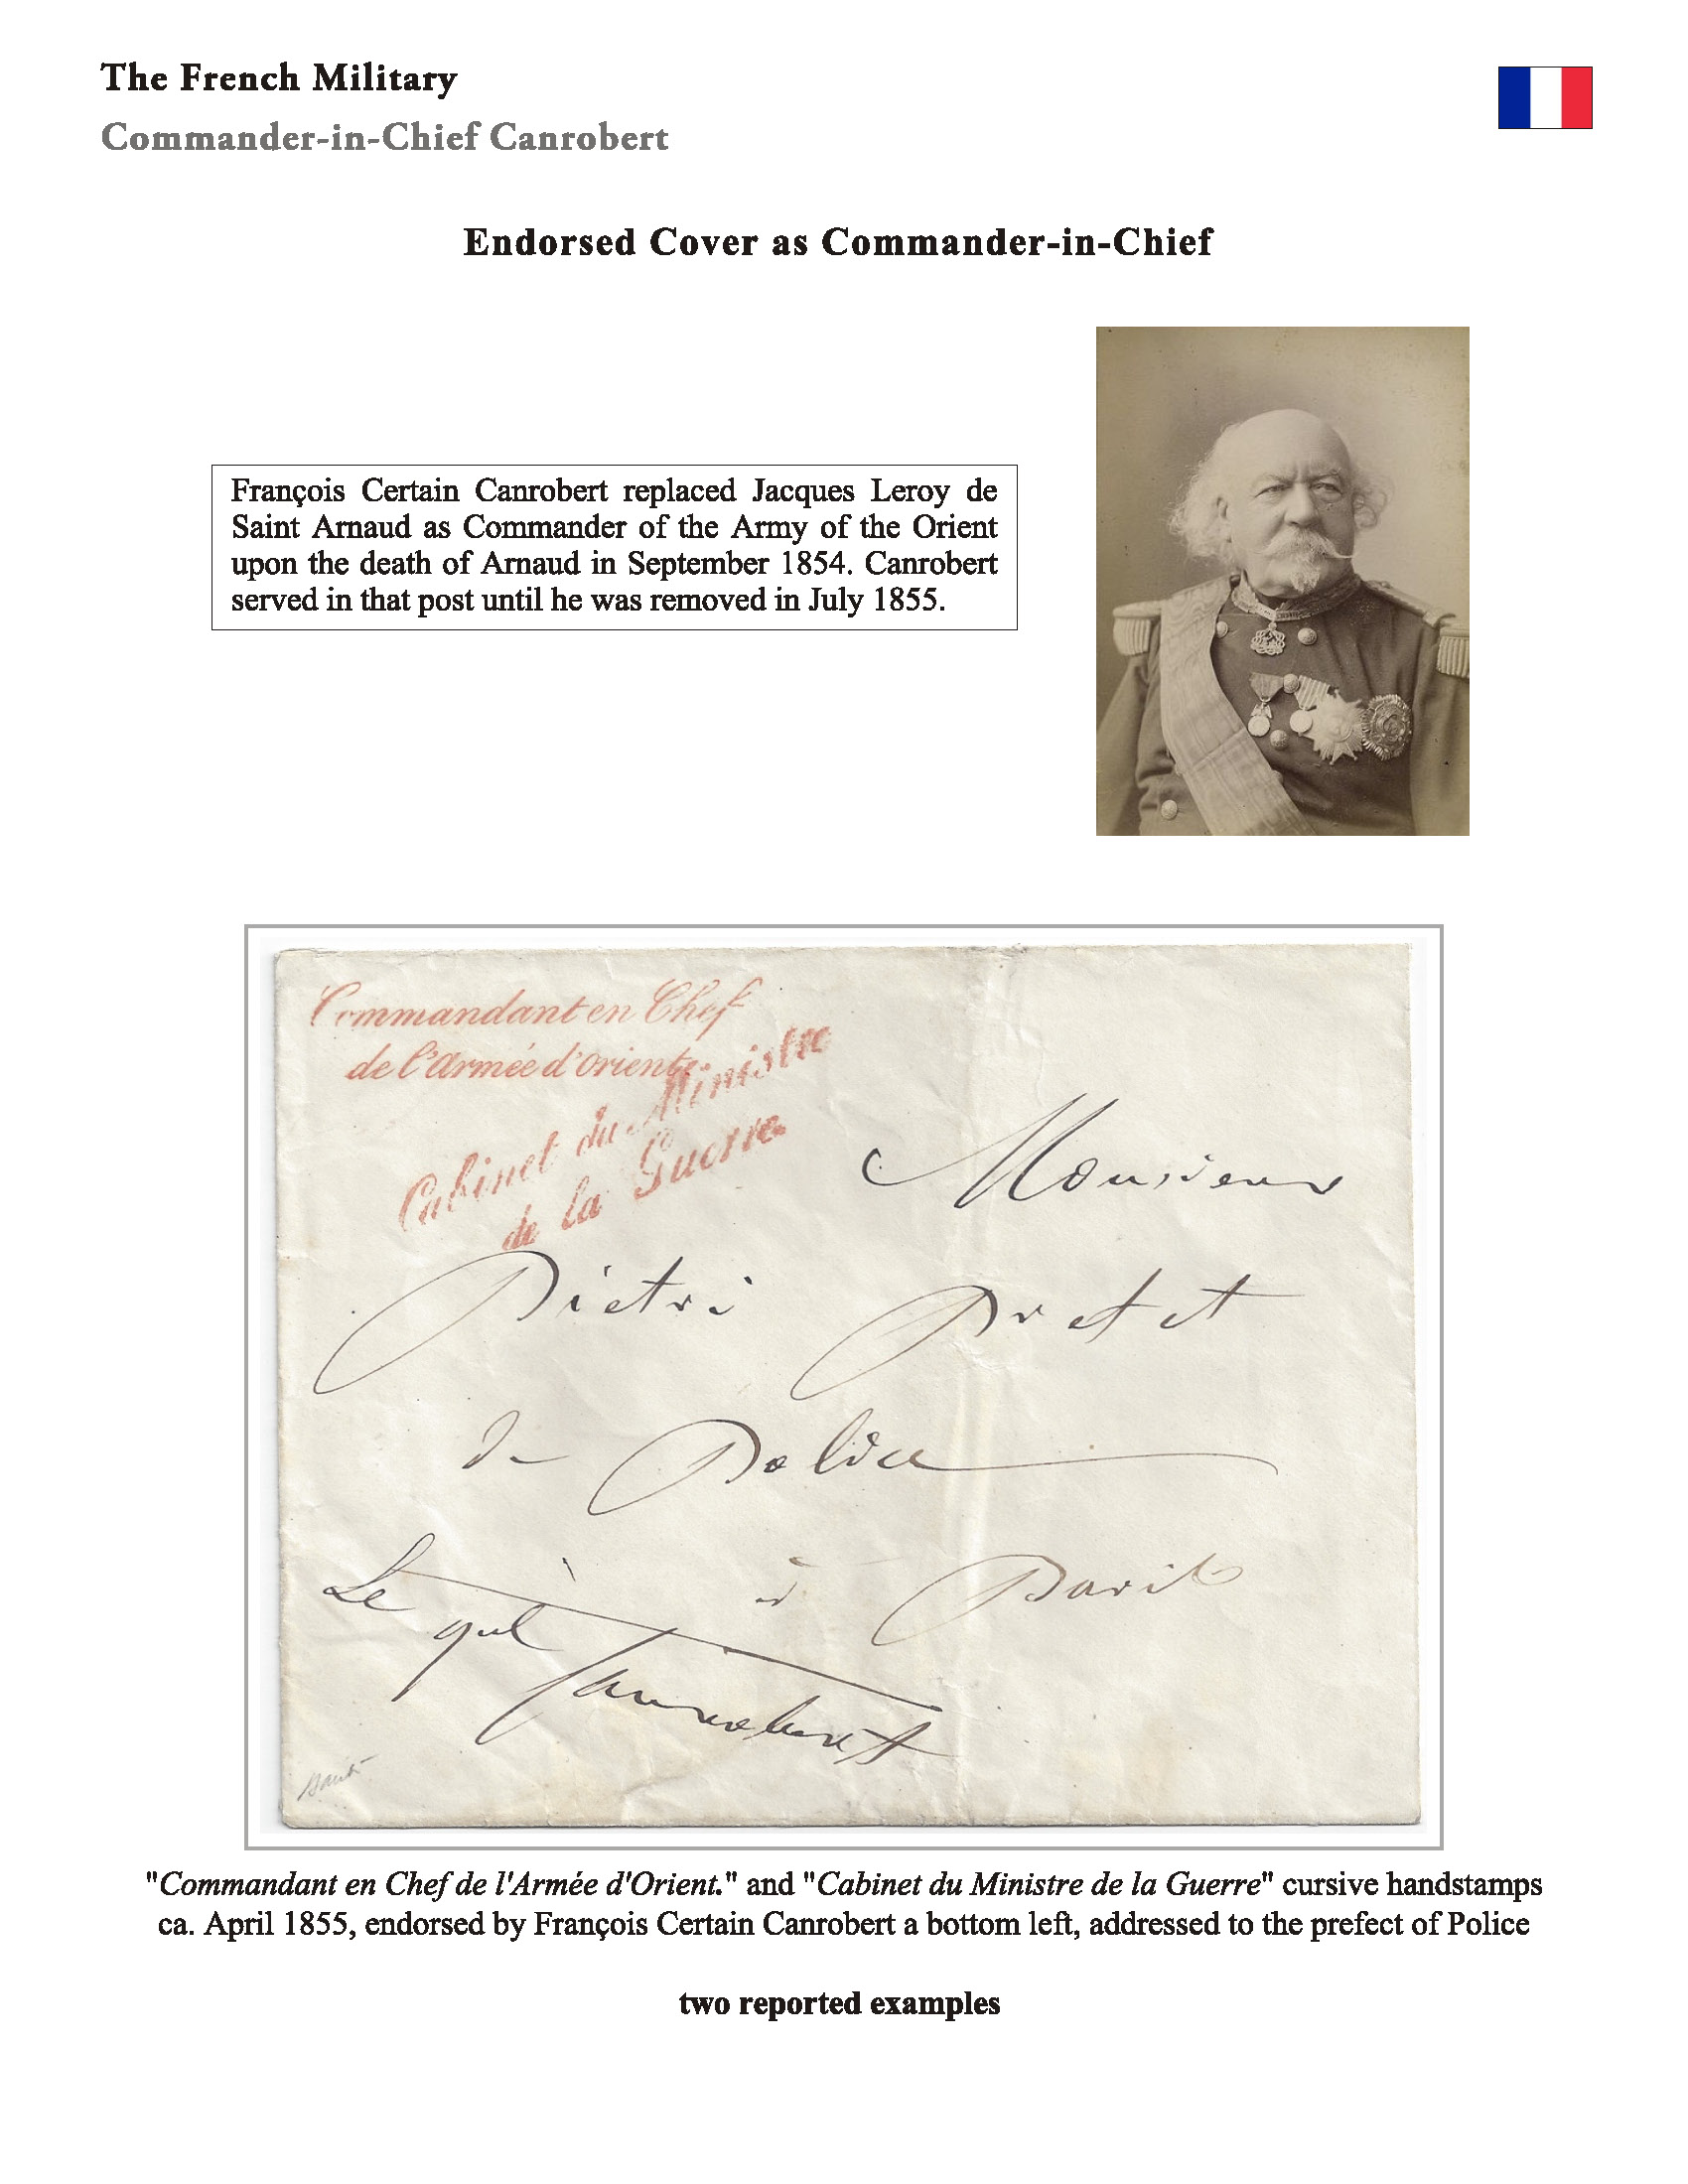 The French Military
Commander-in-Chief Canrobert
Endorsed Cover as Commander-in-Chief
François Certain Canrobert replaced Jacques Leroy de
Saint Arnaud as Commander of the Army of the Orient
upon the death of Arnaud in September 1854. Canrobert
served in that post until he was removed in July 1855.
Commandant en Chef
de l'Armée d'Orient.
Cabinet du Ministre
de la Guerre
Monsieur
Pietri Prefet
de Police
à Paris
Le gal Canrobert
"Commandant en Chef de l'Armée d'Orient." and "Cabinet du Ministre de la Guerre" cursive handstamps
ca. April 1855, endorsed by François Certain Canrobert a bottom left, addressed to the prefect of Police
two reported examples